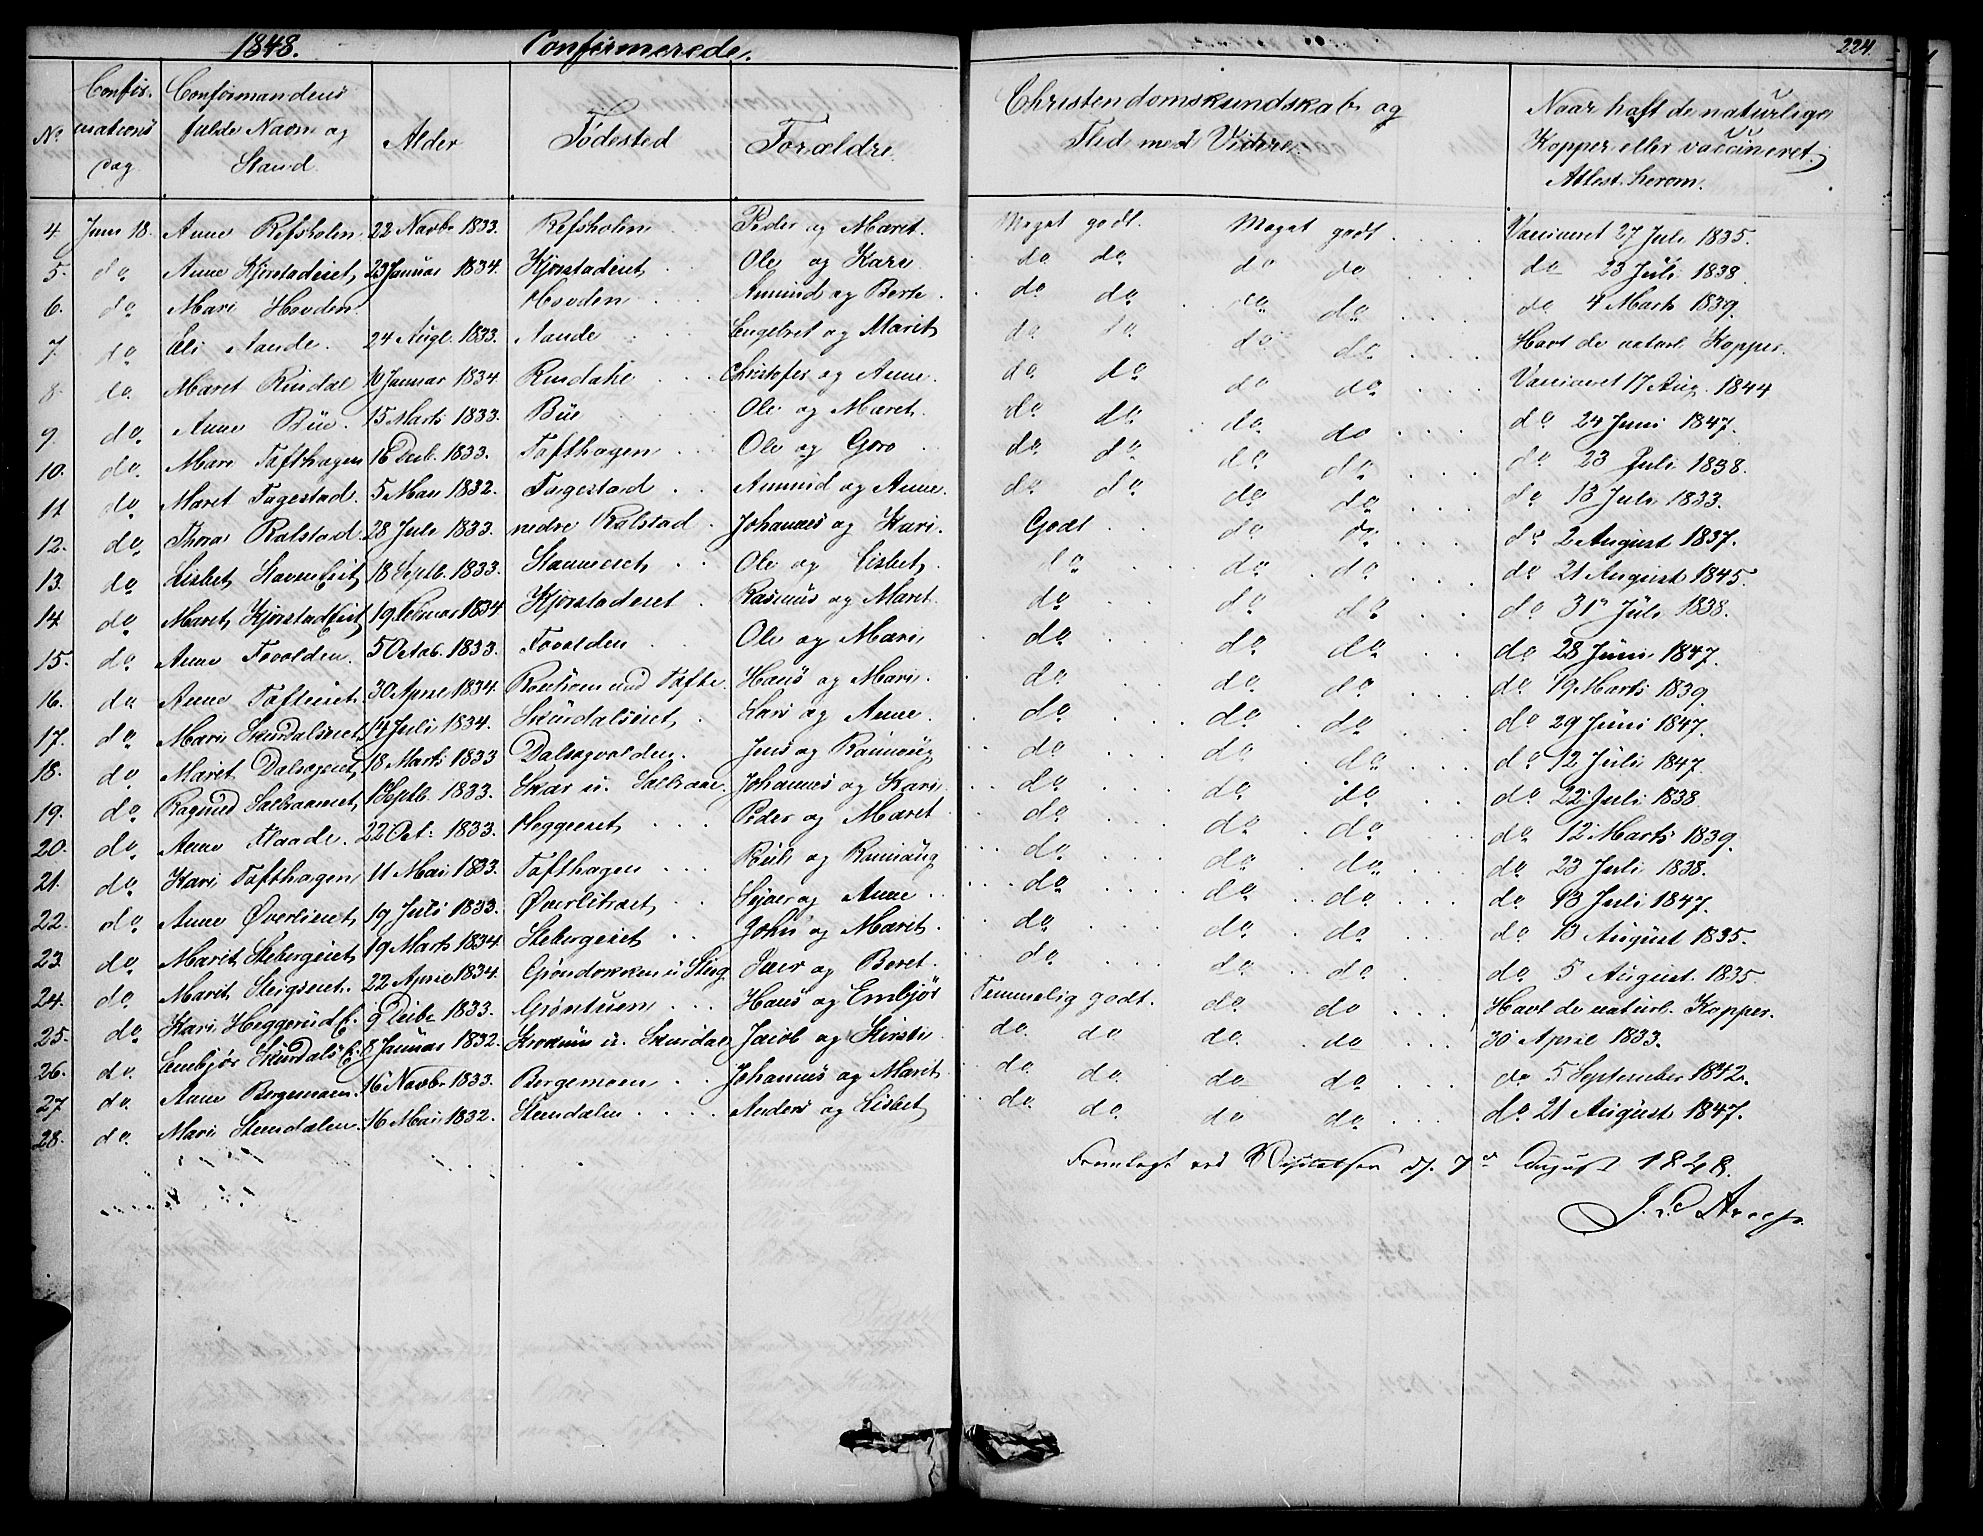 1848. Confirmerede. 224.
No. Confirmations dag Confirmandens fulde Navn og Stand. Alder Fødested Forældre. Christendomskundskab og Flid med Videre. Naar haft de naturlige Kopper eller vaccineret. Attest herom.
4 Juni 18. Anne Refsholen 22 Novbr 1833. Refsholen Peder og Marit. Meget godt. Meget godt Vaccineret 27 Juli 1835.
5. do Anne Kjorstadeiet 23 Januar 1834. Kjorstadeiet Ole og Kari do do do do do 23 Juli 1838.
6. do Mari Hovden Hovden Amund og Berte do do do do do 4 Marts 1839.
7. do Eli Aande. 24 Augt. 1833. Aande Engebret og Marit do do do do Havt de naturl. Kopper.
8. do Maret Rindal 10 Januar 1834 Rindahl Christofer og Anne. do do do do Vaccineret 17 Aug. 1844
9. do Anne Bue. 15 Marts 1833. Bue Ole og Maret. do do do do do 24 Juni 1847.
10. do Mari Tofthagen 16 Decb. 1833. Tofthagen Ole og Goro do do do do do 23 Juli 1838.
11. do Maret Fagestad 5 Mai 1832. Fagestad Amund og Anne. do do do do do 13 Juli 1833.
12. do Thora Ralstad 28 Juli 1833. nedre Ralstad Johannes og Kari. Godt do do do 2 August 1837.
13. do Lisbet 18 Septb. 1833. Ole og Lisbet do do do do 21 August 1845.
14. do Maret Kjorstadeiet 19 Februar 1834 Kjorstadeiet Rasmus og Maret. do do do do 31 Juli 1838.
15. do Anne 5 Octob. 1833. Ole og Mari do do do do 28 Juni 1847.
16. do Anne Tofteeiet 30 April 1834. und Tofte. Hans og Mari. do do do do 19 Marts 1839.
17. do Mari Skurdalseiet 14 Juli 1834. Skurdalseiet Lars og Anne. do do do do 29 Juni 1847.
18. do Maret Dalsegeiet 18 Marts 1833 Dalsegvolden. Jens og Rannoug do do do do 12 Juli 1847.
19. do Ragnild 1 Septb. 1833. Johannes og Kari do do do do 22 Juli 1838.
20. do Anne Flaade. 22 Oct. 1833. Heggeeiet Peder og Maret do do do do 12 Marts 1839.
21. do Kari Tofthagen 11 Mai 1833. Tofthagen og Rannoug do do do do 23 Juli 1838.
22. do Anne Øverlieiet 19 Juli 1833. og Anne do do do do 13 Juli 1847.
23. do Marit Stebergeiet 19 Marts 1834. Stebergeiet John og Marit. do do do do 13 August 1835.
24. do Marit Steigseiet. 22 April 1834. og Beret. do do do do 5 August. 1835.
25. do Kari 9 Decbr 1833. Grøntuen Hans og Embjør Temmelig godt. do do Havt de naturl. Kopper.
26. do Embjør Skurdals E. 8 Januar 1832. u. Skurdal Jacob og Kirsti do do do do 30 April 1833.
27 do Anne Bergemoen. 16 Novbr 1833. Bergemoen Johannes og Marit do do do do do 5 September 1842.
28. do Mari Stendalen 16 Mai 1832. Stendalen Anders og Lisbet do do do do do 21 August 1847.
Fremlagt ved Visitatsen d. 7de August 1848.
J. L. Arup